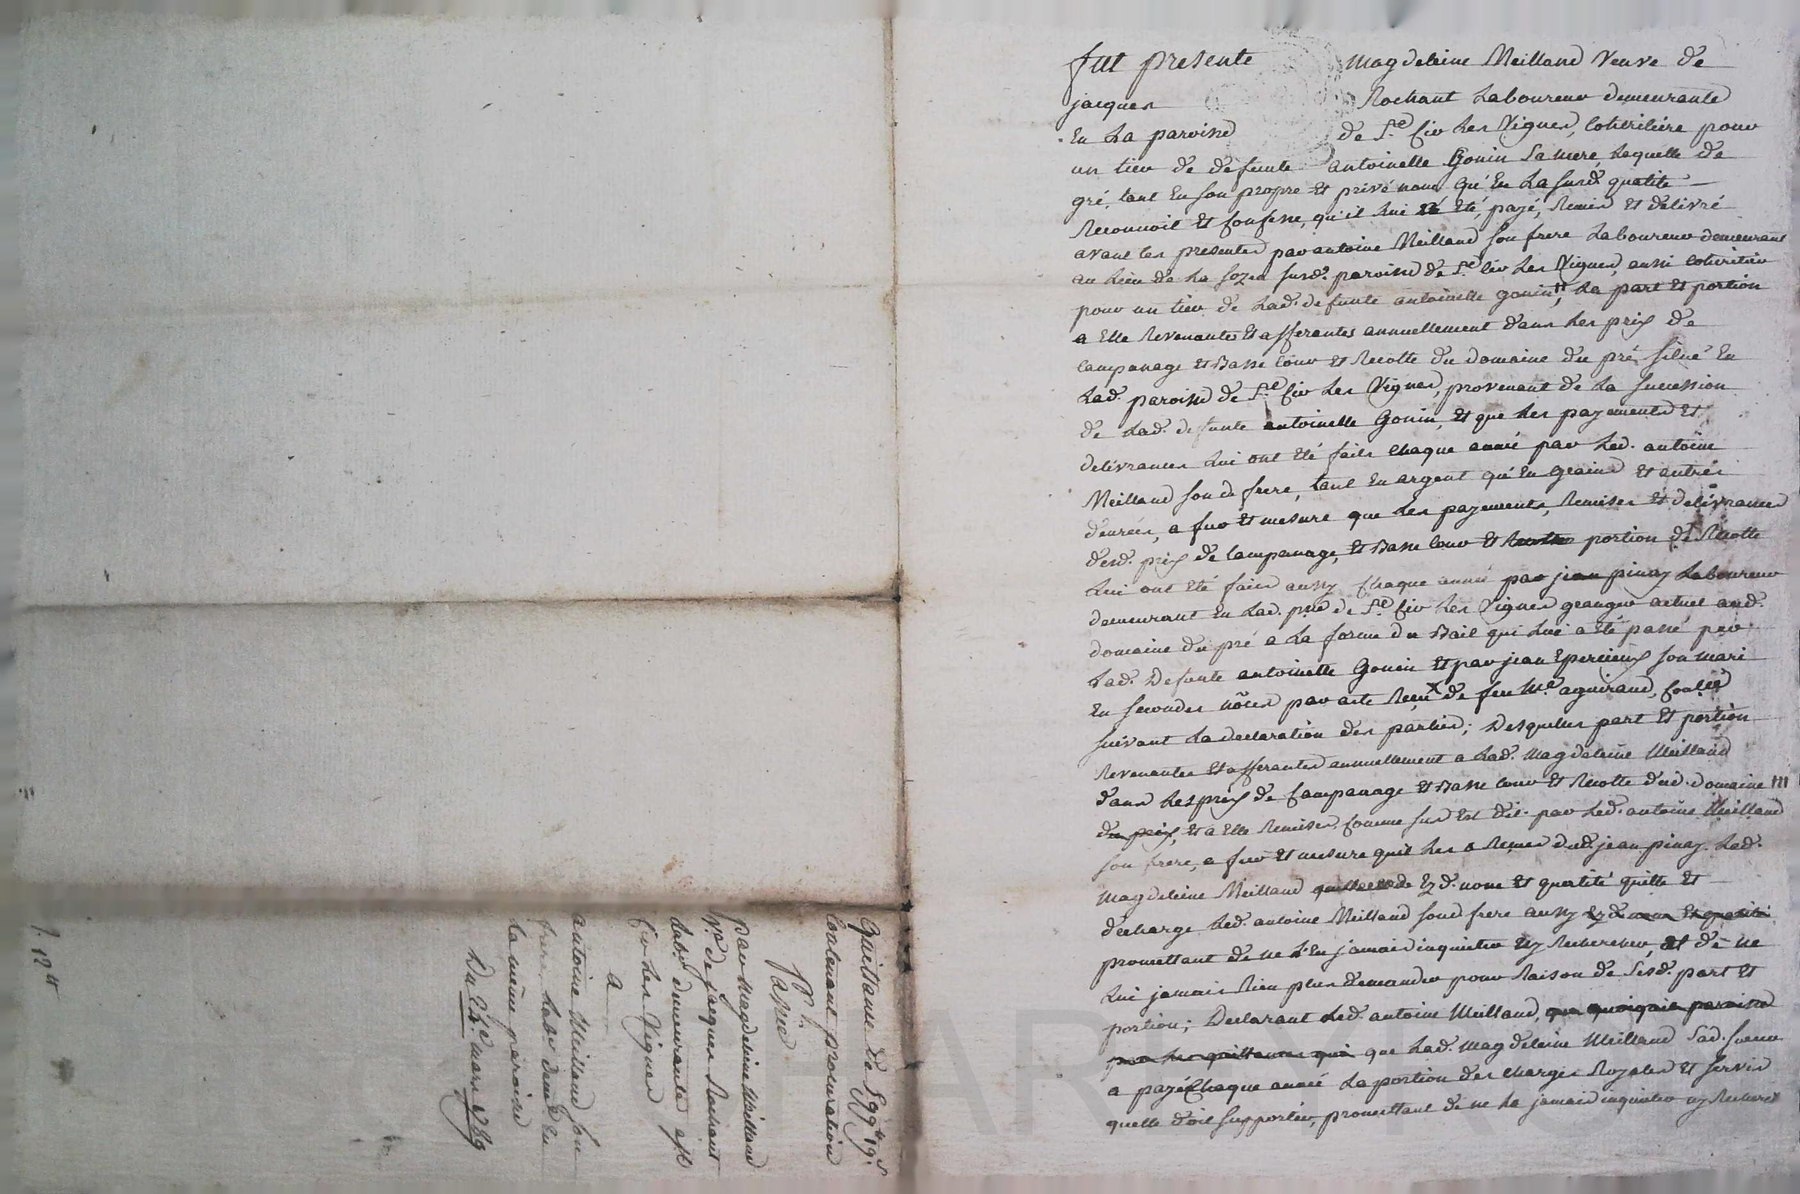 fut presente Magdeleine Meilland Veuve de
jacques Rochant Laboureur demeurante
En La paroisse de St Cir Les Vignes, Coheritiere pour
un tier de defunte antoinette Gonin Sa mere, Laquelle de
gré, tant En Son propre Et privé nom qu'En La Susd. qualité
Reconnoit Et Confesse, qu'il Lui a Eté, payé, Remis Et delivré
avant Les presentes par antoine Meilland Son frere Laboureur demeurant
au Lieu de La Susd. paroisse de St Cir Les Vignes, aussi Coheritier
pour un tier de Lad. defunte antoinette gonin, La part Et portion
a Elle Revenantes Et afferantes annuellement dans Les prix de
Campanage Et Basse Cour Et Recolte du domaine du pré, Situé En
Lad. paroisse de St Cir Les Vignes, provenant de La Succession
de Lad. defunte antoinette Gonin, Et que Les payements Et
delivrances Lui ont Eté faits Chaque année par Led. antoine
Meilland Son d. frere, tant En argent qu'En Grains Et autres
denrées, a fur Et mesure que Les payements, Remises Et delivrances
desd. prix de Campanage, Et Basse Cour Et portion de Recolte
Lui ont Eté faits aussy Chaque année par jean pinay Laboureur
demeurant En Lad. psse de St Cir Les Vignes granger actuel aud.
domaine du pré a La forme du Bail qui Lui a Eté passé par
Lad. Defunte antoinette Gonin Et par jean Epercieux Son mari
En Secondes nôces par acte Reçu de feu Me aguiraud,
Suivant La declaration des parties; Desquelles part Et portion
Revenantes Et afferantes annuellement a Lad. Magdeleine Meilland
dans Les prix de Campanage Et Basse Cour Et Recolte dud. domaine
du prix, Et a Elle Remises, Comme Sus Est dit. par Led. antoine Meilland
Son frere, a fur Et mesure qu'il Les a Reçues dud. jean pinay. Lad.
Magdeleine Meilland Ez d. nom Et qualité quitte Et
decharge Led. antoine Meilland Sond. frere aussy Ez d. nom Et qualité
promettant de ne L'En jamais inquieter ny Rechercher, Et de ne
Lui jamais Rien plus demander pour Raison de Sesd. part Et
portion; Declarant Led. antoine Meilland, que quoique
que Lad. Magdeleine Meilland Sad. Soeur
a payé Chaque année La portion des charges Royales Et Servis
quelle doit Supporter, promettant de ne La jamais inquieter ny Recherch
Quittance de
Contenant procuration
Passée
par Magdeleine Meilland
Ve de jacques Rochant
Labr demeurante a St
Cir Les Vignes
a
antoine Meilland Son
frere Labr demt En
La même paroisse
Du mars 1789